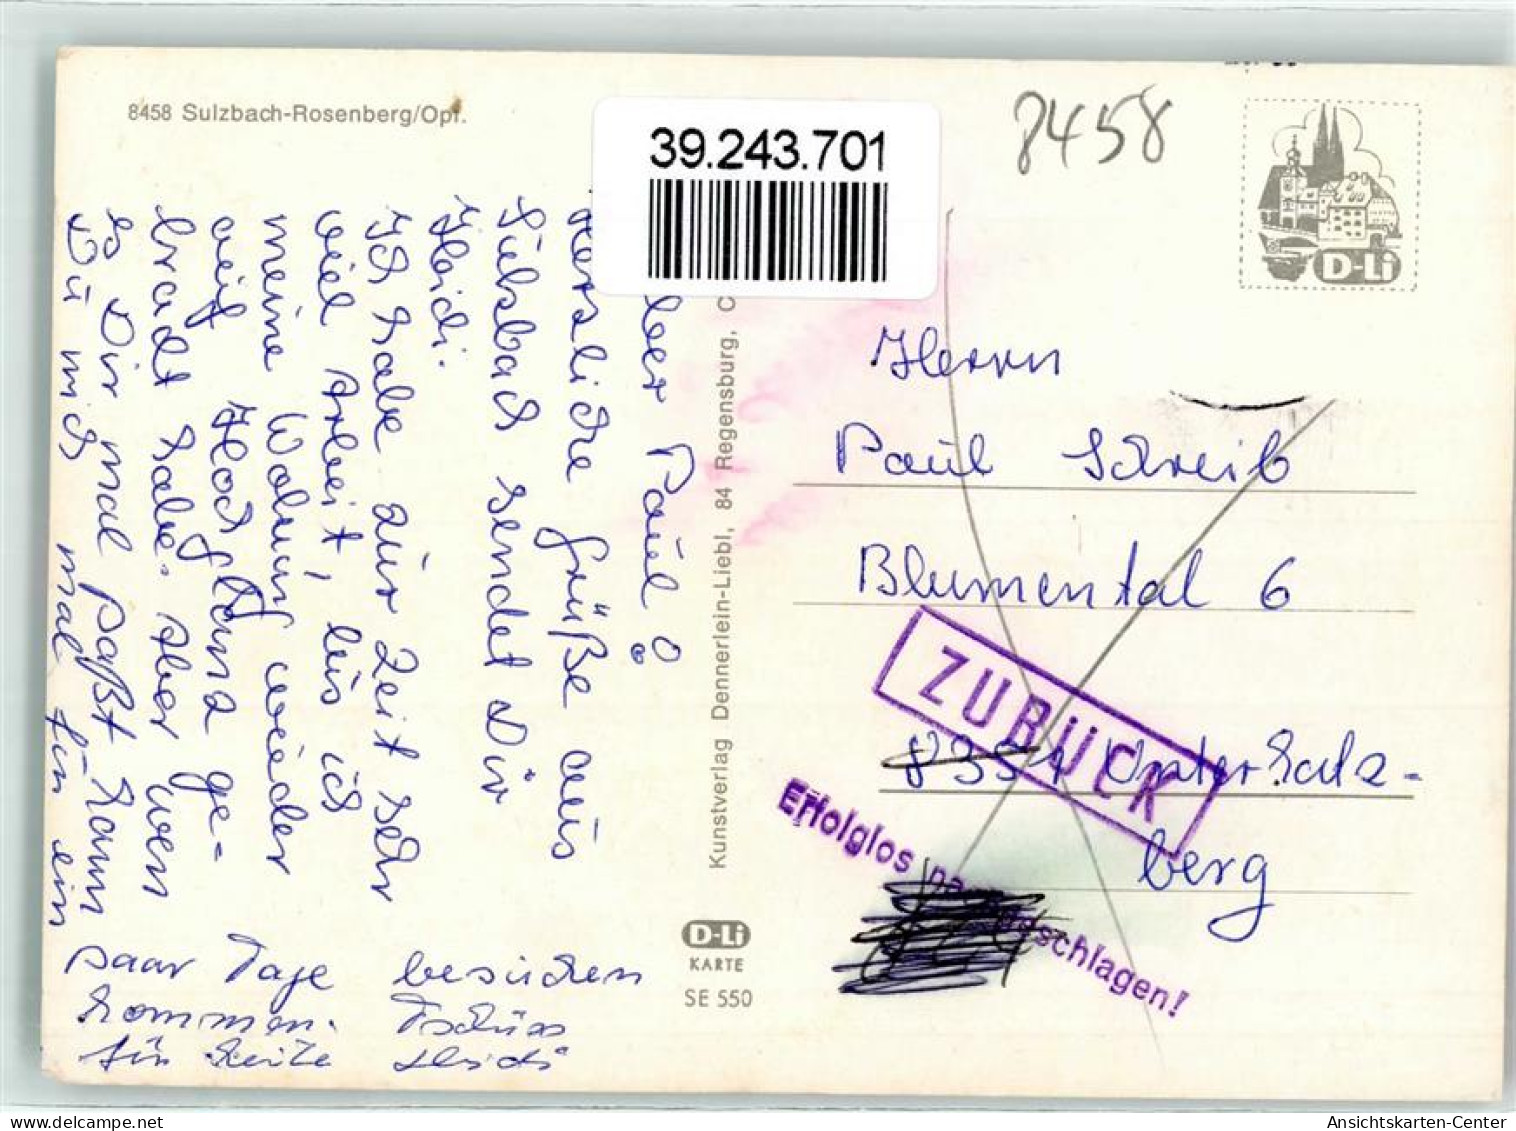 8458 Sulzbach-Rosenberg/Opf.
39.243.701
8458
D-Li
ber Paul!
Herzliche Grüße aus
Sulzbach sendet Dir
Heidi.
Ich habe zur Zeit sehr
viel Arbeit, bis ich
meine Wohnung wieder
auf Hochglanz ge-
bracht habe. Aber wen
es Dir mal paßt kann
Du mich mal für ein
paar Tage besuchen
kommen. Tschüss
für heute Heidi
Kunstverlag Dennerlein-Liebl, 84 Regensburg, C
D-Li
KARTE
SE 550
Herrn
Paul Schreib
Blumental 6
8351 Untersalz-
berg
ZURÜCK
Erfolglos na geschlagen!
Ansichtskarten-Center